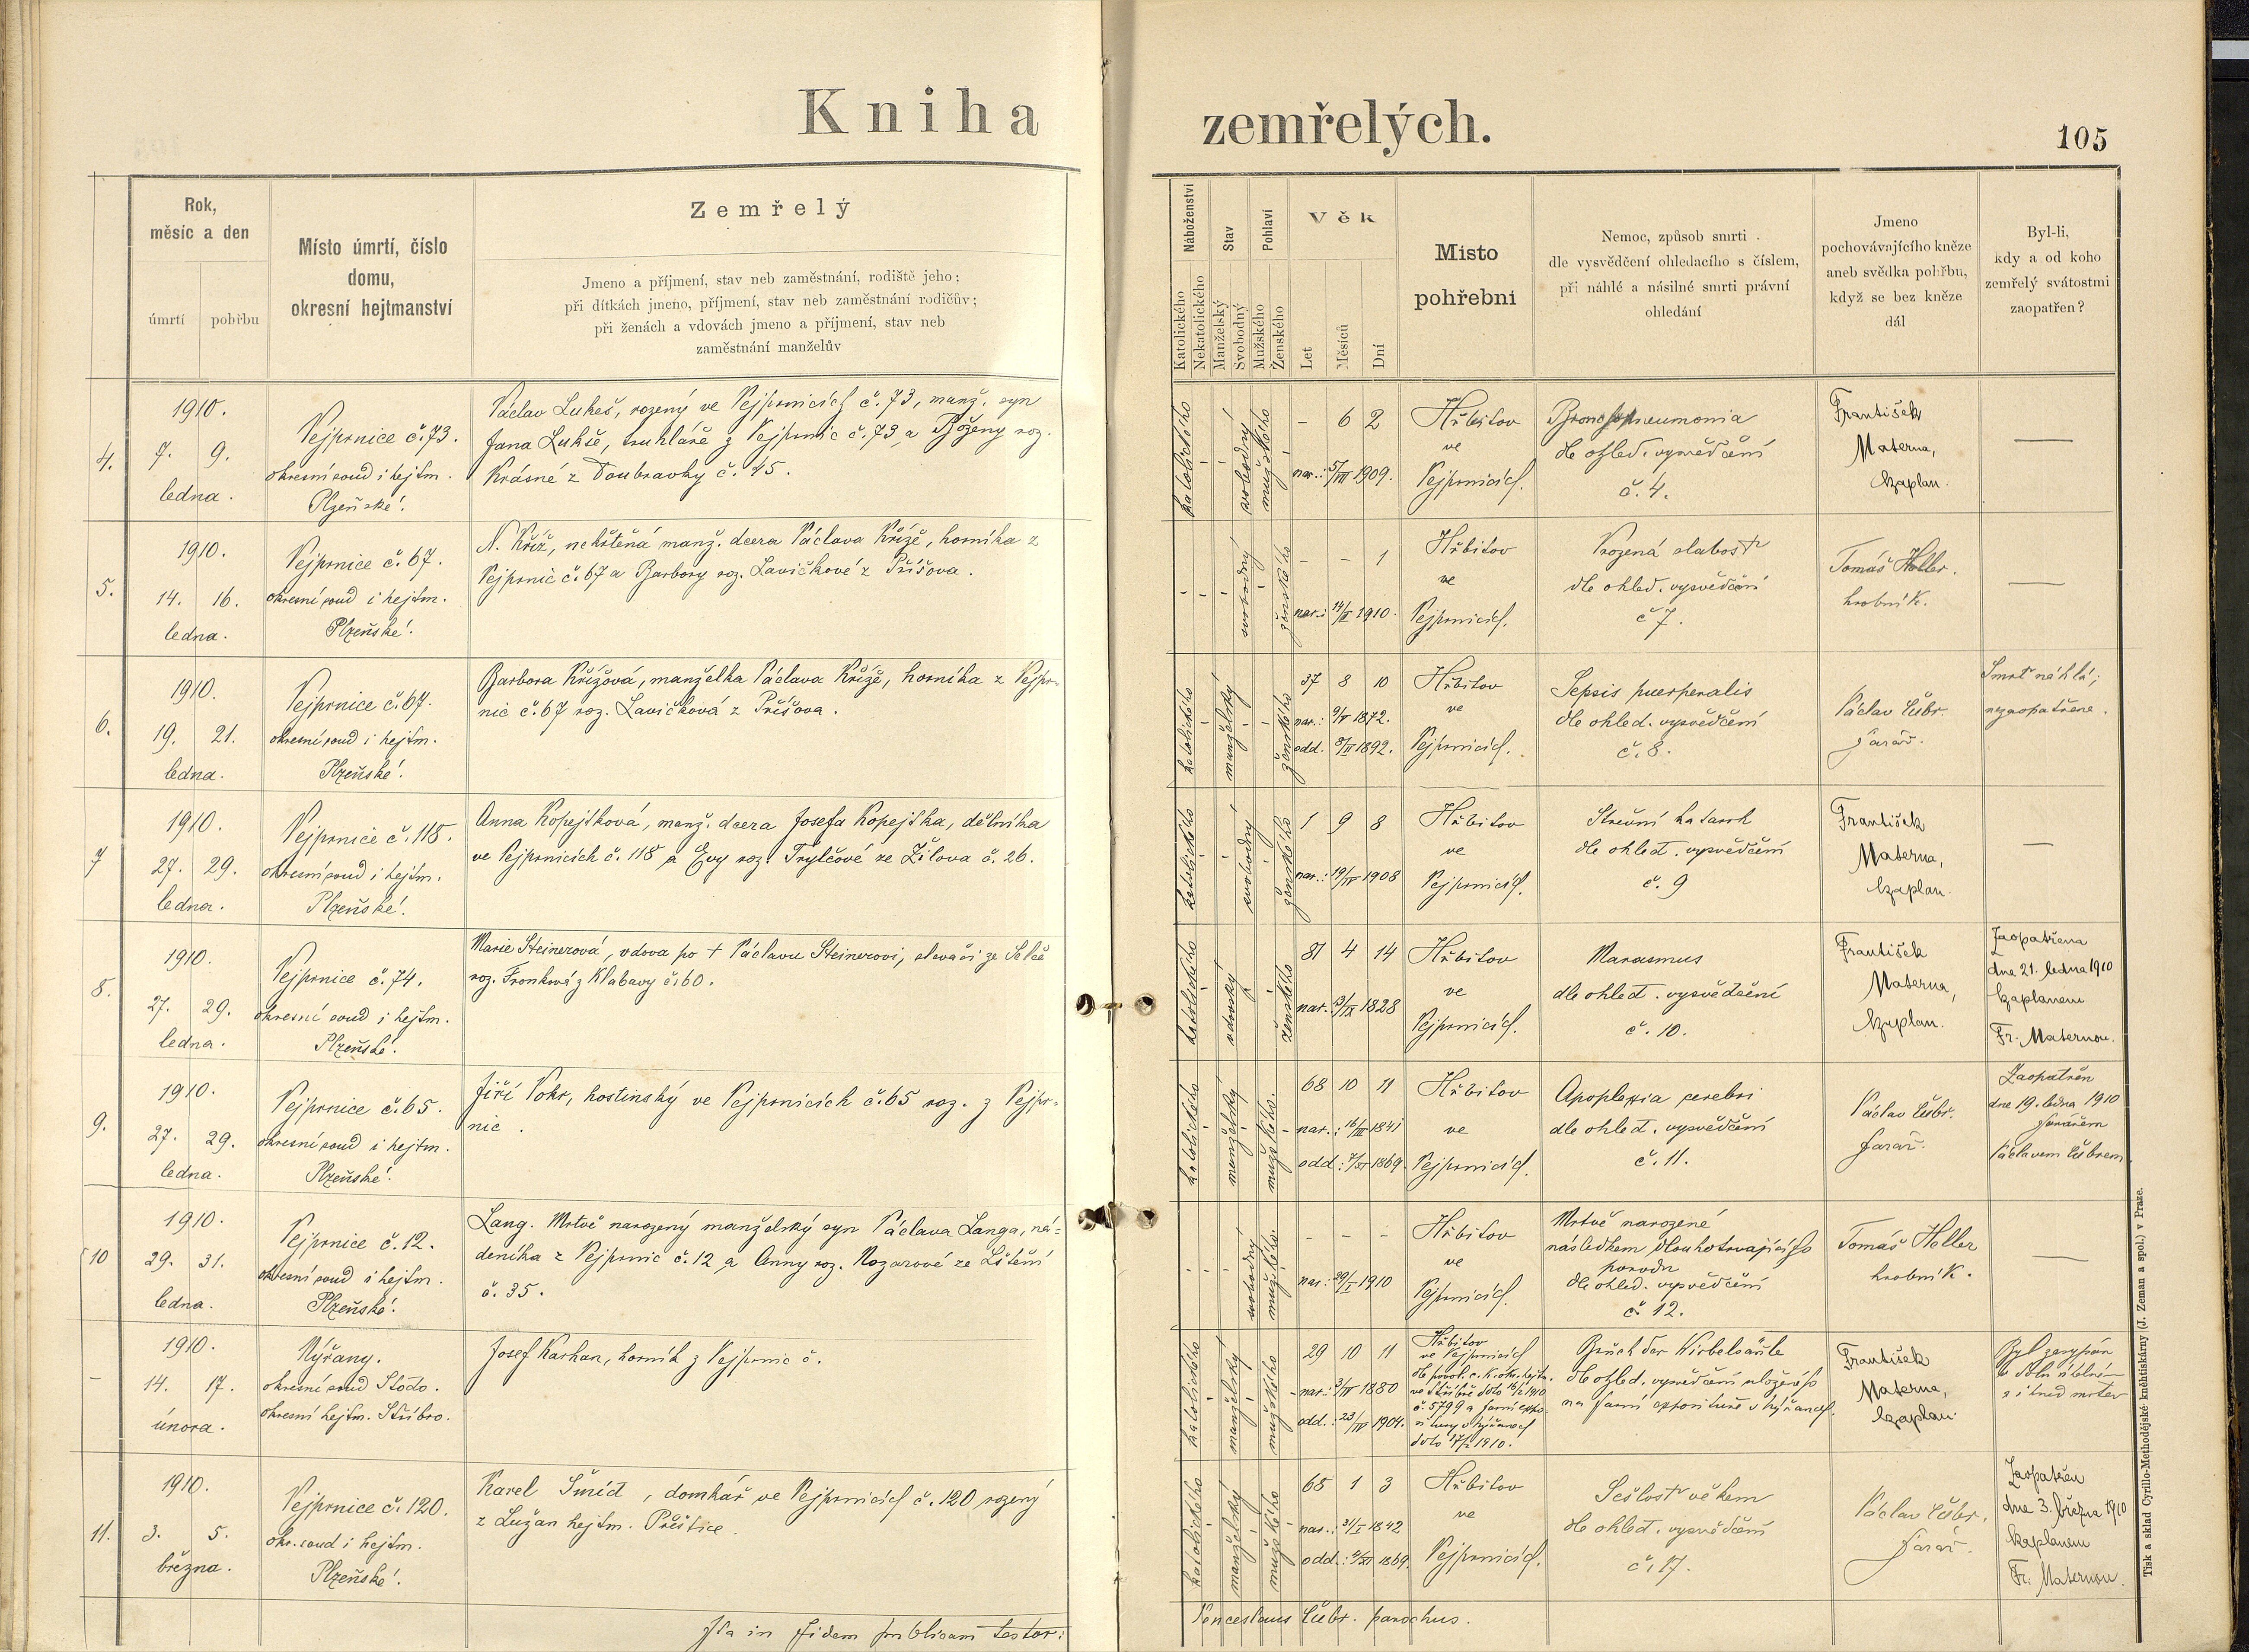 Kniha
zemřelých.
105
Rok,
měsíc a den
úmrtí
pohřbu
Místo úmrtí, číslo
domu,
okresní hejtmanství
Zemřelý
Jmeno a příjmení, stav neb zaměstnání, rodiště jeho;
při dítkách jmeno, příjmení, stav neb zaměstnání rodičův;
při ženách a vdovách jmeno a příjmení, stav neb
zaměstnání manželův
Náboženství
Katolického
Nekatolického
Stav
Manželský
Svobodný
Pohlaví
Mužského
Ženského
Věk
Let
Měsíců
Dní
Místo
pohřební
Nemoc, způsob smrti
dle vysvědčení ohledacího s číslem,
při náhlé a násilné smrti právní
ohledání
Jmeno
pochovávajícího kněze
aneb svědka pohřbu,
když se bez kněze
dál
Byl-li,
kdy a od koho
zemřelý svátostmi
zaopatřen?
4.
1910.
7. 9.
ledna.
Vejprnice č. 73.
okresní soud i hejtm.
Plzeňské.
Václav Lukeš, rozený ve Vejprnicích č. 73, manž. syn
Jana Lukše, truhláře z Vejprnic č. 73 a Boženy roz.
Krásné z Doubravky č. 45.
katolického
svobodný
mužského
- 6 2
nar.: 5/VII 1909.
Hřbitov
ve
Vejprnicích.
Bronchopneumonia
dle ohled. vysvědčení
č. 4.
František
Materna,
kaplan.
—
5.
1910.
14. 16.
ledna.
Vejprnice č. 67.
okresní soud i hejtm.
Plzeňské.
N. Kříž, nekřtěná manž. dcera Václava Kříže, horníka z
Vejprnic č. 67 a Barbory roz. Lavičkové z Příšova.
svobodný
ženského
- - 1
nar.: 14/I 1910.
Hřbitov
ve
Vejprnicích.
Vrozená slabost
dle ohled. vysvědčení
č 7.
Tomáš Holler.
hrobník.
—
6.
1910.
19. 21.
ledna.
Vejprnice č. 67.
okresní soud i hejtm.
Plzeňské.
Barbora Křížová, manželka Václava Kříže, horníka z Vejpr-
nic č. 67 roz. Lavičková z Příšova.
katolického
manželský
ženského
37 8 10
nar.: 9/V 1872.
odd. 1892.
Hřbitov
ve
Vejprnicích.
Sepsis puerperalis
dle ohled. vysvědčení
č. 8.
Václav
farář.
Smrt náhlá;
nezaopatřena.
7
1910.
27. 29.
ledna.
Vejprnice č. 118.
okresní soud i hejtm.
Plzeňské.
Anna Kopejtková, manž. dcera Josefa Kopejtka, dělníka
ve Vejprnicích č. 118 a Evy roz. Trylčové ze Žilova č. 26.
katolického
svobodný
ženského
1 9 8
nar.: 19/IV 1908
Hřbitov
ve
Vejprnicích.
Střevní katarrh
dle ohled. vysvědčení
č. 9
František
Materna,
kaplan.
—
8.
1910.
27. 29.
ledna.
Vejprnice č. 74.
okresní soud i hejtm.
Plzeňské.
Marie Steinerová, vdova po + Václavu Steinerovi, slevači ze Selče
roz. Fronková z Klabavy č. 60.
katolického
vdovský
ženského
81 4 14
nar. 13/IX 1828
Hřbitov
ve
Vejprnicích.
Marasmus
dle ohled. vysvědčení
č. 10.
František
Materna,
kaplan.
Zaopatřena
dne 21. ledna 1910
kaplanem
Fr. Maternou.
9.
1910.
27. 29.
ledna.
Vejprnice č. 65.
okresní soud i hejtm.
Plzeňské.
Jiří Pokr, hostinský ve Vejprnicích č. 65 roz. z Vejpr-
nic.
katolického
manželský
mužského.
68 10 11
nar.: 16/III 1841
odd.: 7/XI 1869.
Hřbitov
ve
Vejprnicích.
Apoplexia cerebri
dle ohled. vysvědčení
č. 11.
Václav
farář.
Zaopatřen
dne 19. ledna 1910
farářem
Václavem
10
1910.
29. 31.
ledna.
Vejprnice č. 12.
okresní soud i hejtm.
Plzeňské.
Lang. Mrtvě narozený manželský syn Václava Langa, ná-
deníka z Vejprnic č. 12 a Anny roz. Nozarové ze Lštění
č. 35.
svobodný
mužského.
- - -
nar.: 29/I 1910
Hřbitov
ve
Vejprnicích.
Mrtvě narozené
následkem dlouhotrvajícího
porodu
dle ohled. vysvědčení
č. 12.
Tomáš Holler
hrobník.
—
-
1910.
14. 17.
února.
Nýřany.
okresní soud Stodo.
okresní hejtm. Stříbro.
Josef Karhan, horník z Vejprnic č.
katolického
manželský
mužského
29 10 11
nar.: 3/IV 1880
odd.: 23/IV 1904.
Hřbitov
ve Vejprnicích
dle povol. c. k. okr. hejtm.
ve Stříbře dato 16/2 1910
č. 5799 a farní expo-
situry v Nýřanech
dato 17/2 1910.
Bruch der Wirbelsäule
dle ohled. vysvědčení uloženého
na farní expositurě v Nýřanech.
František
Materna,
kaplan
Byl zasypán
v dolu uhelném
a ihned mrtev
11.
1910.
3. 5.
března.
Vejprnice č. 120.
okr. soud i hejtm.
Plzeňské.
Karel Šmíd, domkář ve Vejprnicích č. 120 rozený
z Lužan hejtm. Přeštice.
katolického
manželský
mužského
68 1 3
nar.: 31/I 1842
odd.: 1869.
Hřbitov
ve
Vejprnicích.
Sešlost věkem
dle ohled. vysvědčení
č. 17.
Václav
farář.
Zaopatřen
dne 3. března 1910
kaplanem
Fr. Maternou.
Ita in fidem publicam testor:
Venceslaus parochus.
Tisk a sklad Cyrillo-Methodějské kněhtiskárny (J. Zeman a spol.) v Praze.